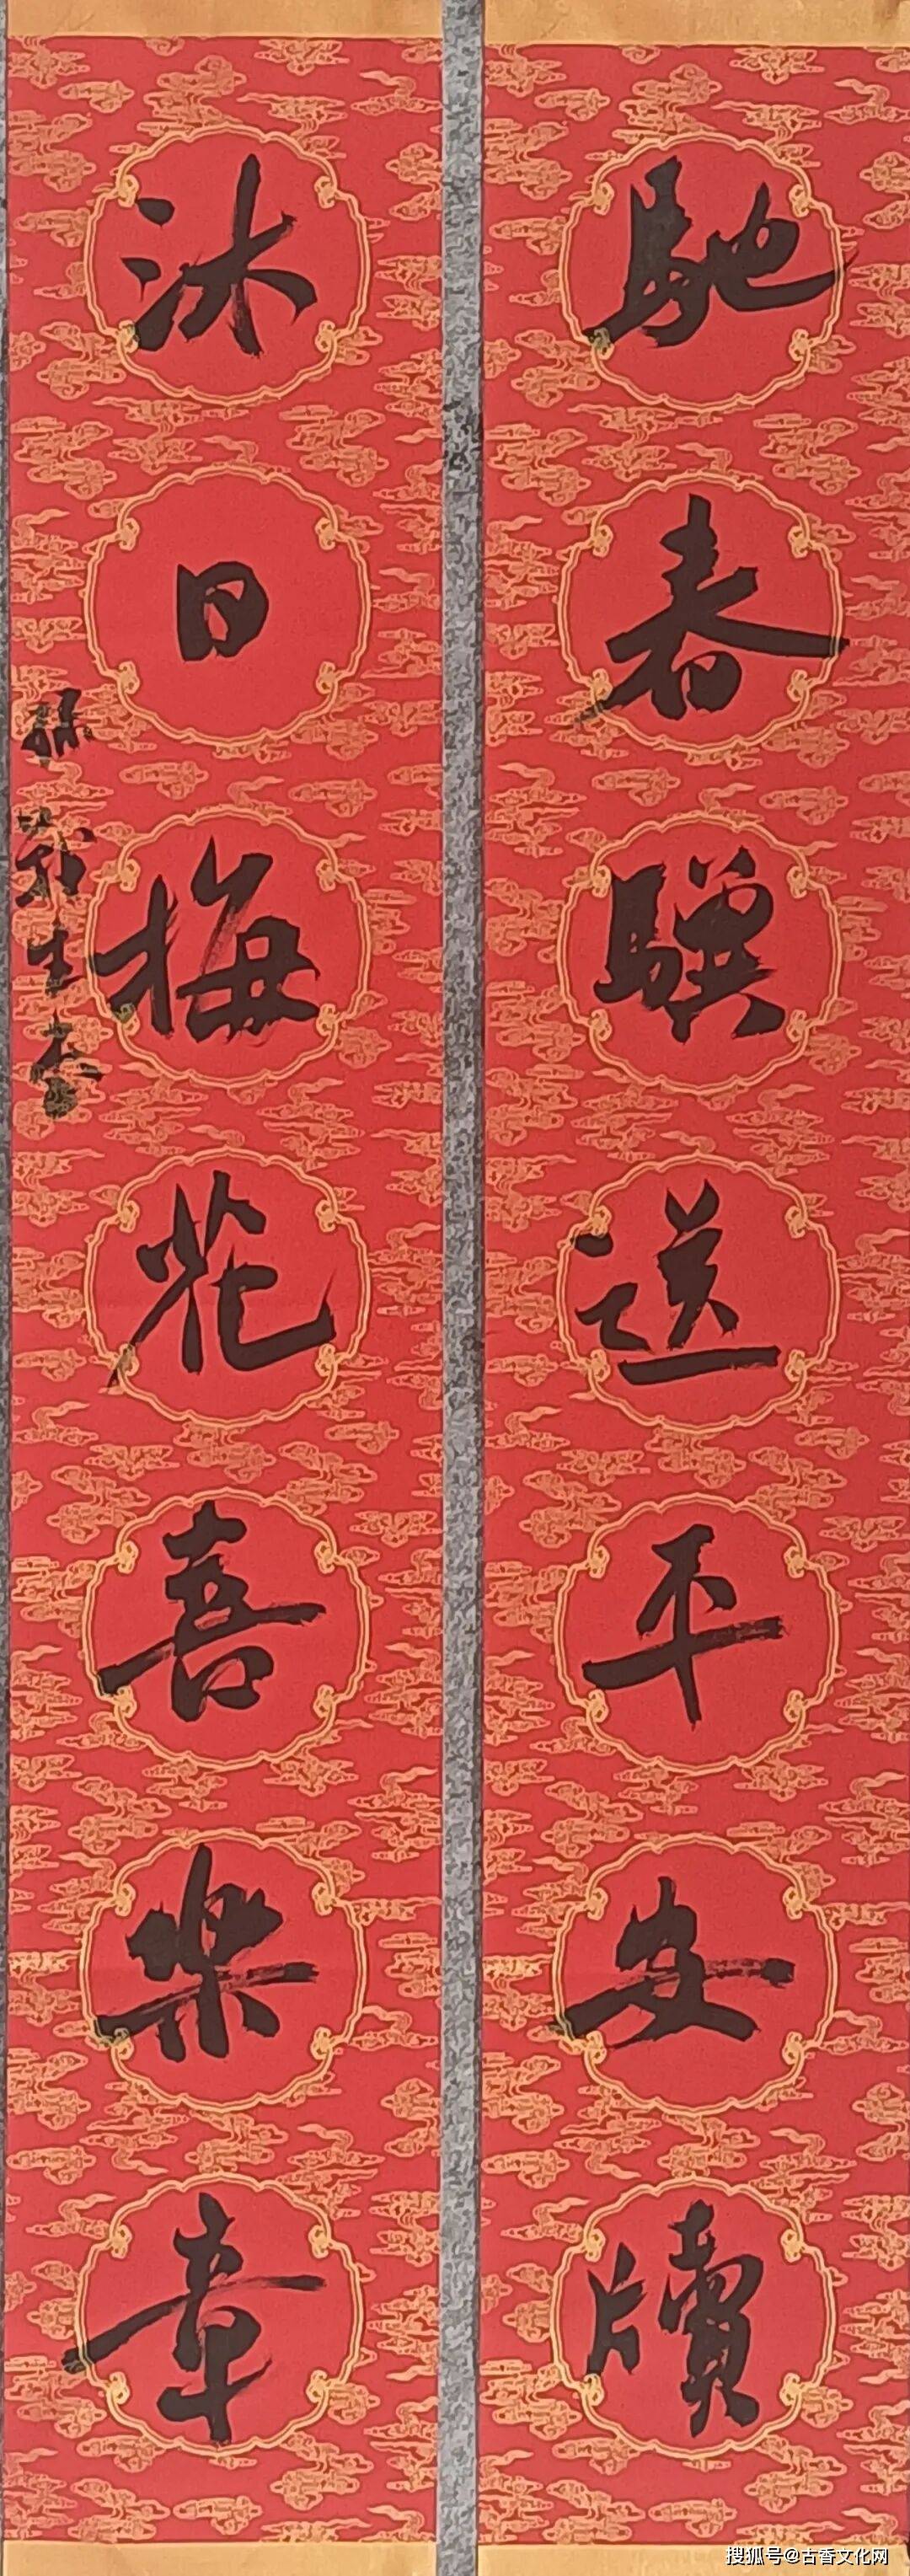 馳春驥送平安牘
沐日梅花喜樂章
搜狐号@古香文化网